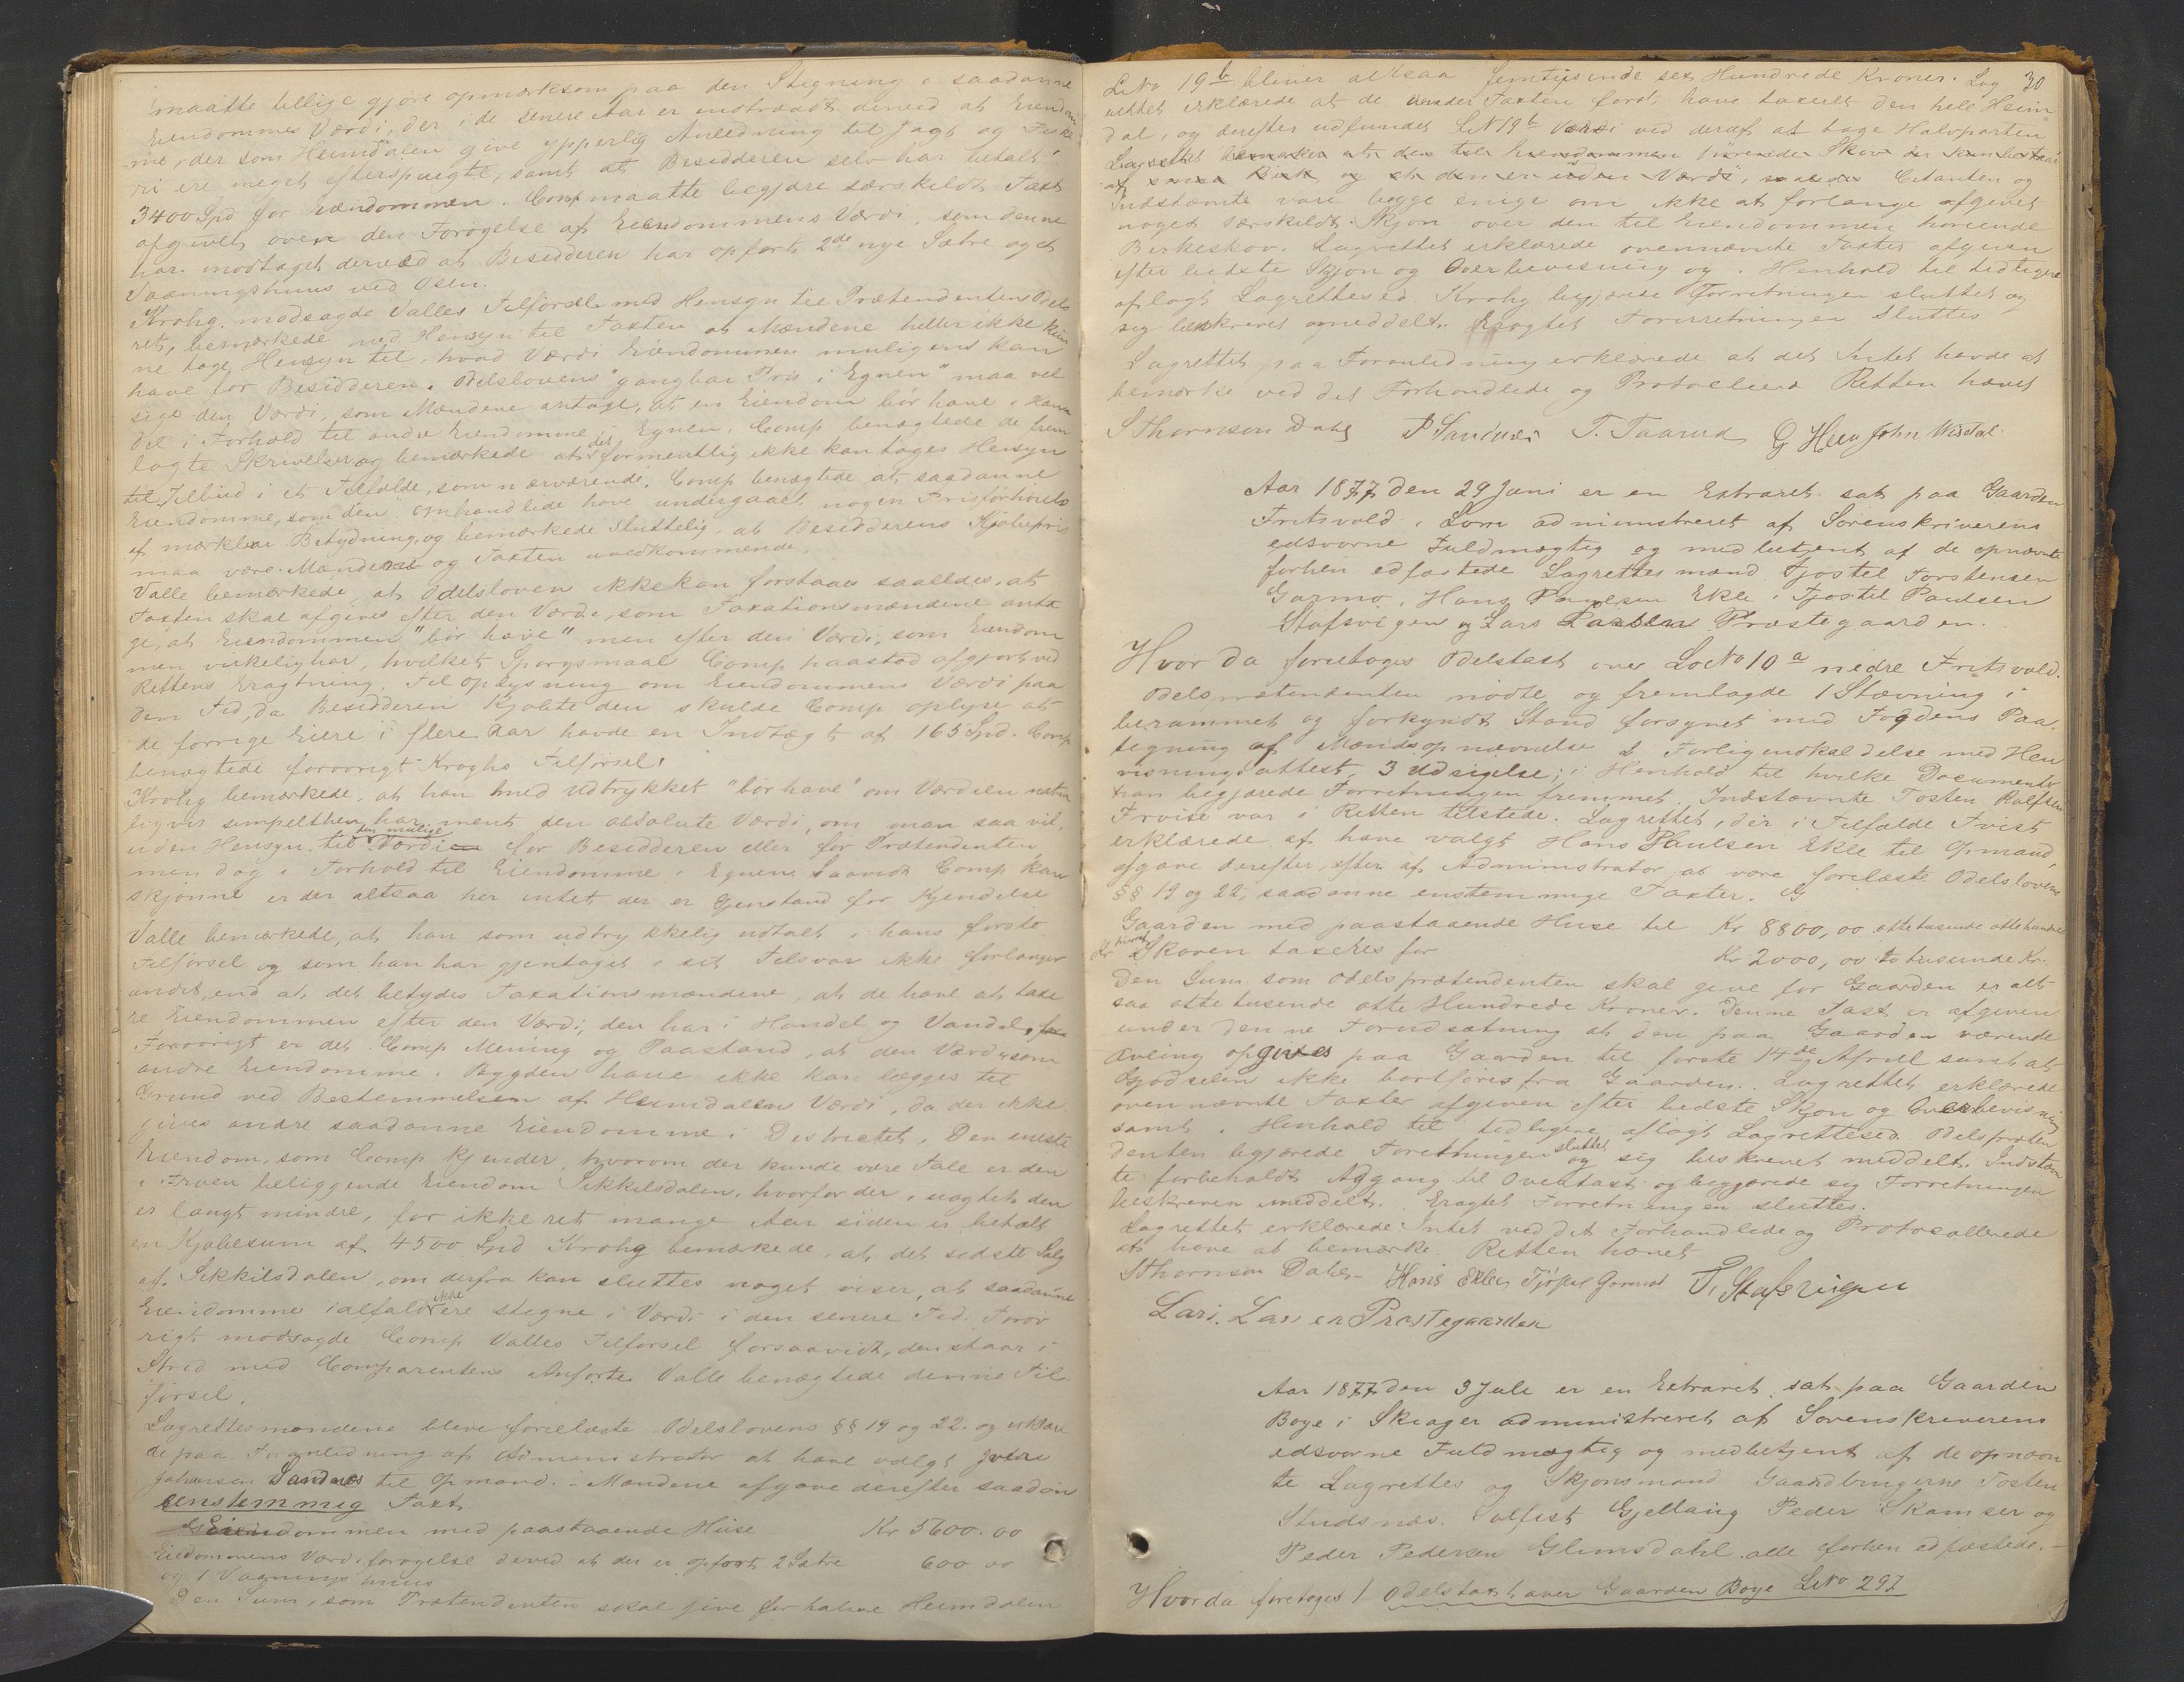 maatte tillige gjøre opmærksom paa den Stigning i saadanne
Eiendommes Værdi, der i de senere Aar er indtraadt derved at Eiendom
me, der som Heimdalen give ypperlig Anledning til Jagt og Fiske
ri ere meget efterspurgte, samt at Besidderen selv har betalt
3400 Spd for Eiendommen. Comp maatte begjære særskildt Taxt
afgivet over den Forøgelse af Eiendommens Værdi som denne
har modtaget derved at Besidderen har opført 2de nye Sætre og et
Vaaningshuus ved Osen.
Krohg modsagde Valles Tilførsel med Hensyn til Prætendentens Odels
ret, bemærkede med Hensyn til Taxten at Mændene heller ikke kun
ne tage Hensyn til, hvad Værdi Eiendommen muligens kan
have for Besidderen. Odelslovens "gangbar Pris i Egnen" maa vel
sige den Værdi, som Mændene antage, at en Eiendom bør have i Han
del i Forhold til andre Eiendomme i Egnen. Comp benægtede de frem
lagte Skrivelser og bemærkede at der formentlig ikke kan tages Hensyn
til Tilbud i et Tilfælde, som nærværende. Comp benægtede at saadanne
Eiendomme, som den omhandlede have undergaaet nogen Prisforhøielse
af mærkbar Betydning, og bemærkede sluttelig, at Besidderens Kjøbepris
maa være Mændene og Taxten uvedkommende.
Valle bemærkede, at Odelsloven ikke kan forstaaes saaledes, at
Taxten skal afgives efter den Værdi, som Taxationsmændene anta
ge, at Eiendommen "bør have" men efter den Værdi, som Eiendom
men virkelig har, hvilket Spørgsmaal Comp paastod afgjort ved
Rettens Eragtning. Til Oplysning om Eiendommens Værdi paa
den Tid, da Besidderen kjøbte den skulde Comp oplyse at
de forrige Eiere i flere Aar havde en Indtægt af 165 Spd. Comp
benægtede forøvrigt Kroghs Tilførsel.
Krohg bemærkede, at han med Udtrykket "bør have" om Værdien natur
ligvis simpelthen har ment den absolute Værdi, om man saa vil,
uden Hensyn til den mulige Værdi for Besidderen eller for Prætendenten
men dog i Forhold til Eiendomme i Egnen. Saavidt Comp kan
skjønne er der altsaa her intet der er Gjenstand for Kjendelse
Valle bemærkede, at han som udtrykkelig udtalt i hans første
Tilførsel og som han har gjentaget i sit Tilsvar ikke forlanger
andet, end at det betydes Taxationsmændene, at de have at taxe
re Eiendommen efter den Værdi, den har i Handel og Vandel.
Forøvrigt er det Comp Mening og Paastand, at den Værdi som
andre Eiendomme i Bygden have ikke kan lægges til
Grund ved Bestemmelsen af Heimdalens Værdi, da der ikke
gives andre saadanne Eiendomme i Districtet. Den eneste
Eiendom, som Comp kjender, hvorom der kunde være Tale er den
i Froen beliggende Eiendom Sikkilsdalen, hvorfor der, uagtet den
er langt mindre, for ikke ret mange Aar siden er betalt
en Kjøbesum af 4500 Spd Krohg bemærkede, at det sidste Salg
af Sikkilsdalen, om derfra kan sluttes noget viser, at saadanne
Eiendomme ialfald ikke ere stegne i Værdi i den senere Tid. Forøv
rigt modsagde Comp Valles Tilførsel forsaavidt, den staar i
Strid med Comparentens Anførte. Valle benægtede denne Til
førsel.
Lagrettesmændene bleve forelæste Odelslovens §§ 19 og 22. og erklære
de paa Foranledning af Administrator at have valgt
Johansen Sandnæs til Opmand. – Mændene afgave derefter saadan
eenstemmig Taxt
Eiendommen med paastaaende Huse Kr 5600.00
Eiedommens Værdiforøgelse derved at der er opført 2 Sætre 600 00
og 1 Vaanings huus
Den Sum, som Prætendenten skal give for halve Heimdalen
30
LNo 19b bliver altsaa femtusinde sex Hundrede Kroner. Lag
rettet erklærede at de under Taxten først have taxeret den hele Heim
dal, og derefter udfundet LN 19b Værdi ved deraf at tage Halvparten
Lagrettet bemærker at den til Eiendommen hørende Skov
af Birk og at den er uden Værdi, Citanten og
Indstævnte vare begge enige om ikke at forlange afgivet
noget særskildt Skjøn over den til Eiendommen hørende
Birkeskov. Lagrettet erklærede ovennævnte Taxter afgiven
efter bedste Skjøn og Overbevisning og i Henhold til tidligere
aflagt Lagrettesed. Krohg begjærede Forretningen sluttet og
sig beskrevet meddelt. Eragtet Forrretningen sluttes
Lagrettet paa Foranledning erklærede at det Intet havde at
bemærke ved det Forhandlede og Protocollerede Retten hævet
SThomson Dahl T. Taarud
Aar 1877 den 29 Juni er en Extraret sat paa Gaarden
Fritsvold i Lom administreret af Sorenskriverens
edsvorne Fuldmægtig og med betjent af de opnævnte
forhen edfæstede Lagrettesmænd Tjøstel Torstensen
Garmo, Hans Paulsen Ekle, Tjøstel Paulsen
Stafsvigen og Lars Larsen Præstegaarden.
Hvor da foretoges Odelstaxt over LøbNo 10a nedre Fritsvold.
Odelsprætendenten mødte og fremlagde 1 Stævning i
berammet og forkyndt Stand forsynet med Fogdens Paa
tegning af Mændsopnævnelse 2 Forligsindkaldelse med Hen
visningsattest, 3 Udsigelse; i Henhold til hvilke Documenter
han begjærede Forretningen fremmet. Indstævnte Tosten Rolfsen
Frvise var i Retten tilstede. Lagrettet, der i Tilfælde Tvist
erklærede at have valgt Hans Paulsen Ekle til Opmand,
afgave derefter, efter af Administrator at være forelæste Odelslovens
§§ 19 og 22, saadanne enstemmige Taxter.
Gaarden med paastaaende Huse til Kr 8800,00 otte tusende otte hundrede
Kr
Skoven taxeres for Kr 2000,00 to tusunde Kr.
Den Sum som Odelsprætendenten skal give for Gaarden er alt
saa otte tusende otte Hundrede Kroner. Denne Taxt er afgiven
under denne Forudsætning at den paa Gaarden værende
Avling opgives paa Gaarden til første 14de April samt at
Gjødselen ikke bortføres fra Gaarden. Lagrettet erklærede
ovennævnte Taxter afgiven efter bedste Skjøn og Overbevisning
samt i Henhold til tidligere aflagt Lagrettesed. Odelspræten
denten begjærede Forretningen sluttet og sig beskrevet meddelt. Indstævn
te forbeholdt Adgang til Overtaxt og begjærede sig Forretningen
beskreven meddelt. Eragtet Forretningen sluttes.
Lagrettet erklærede Intet ved det Forhandlede og Protocollerede
at have at bemærke. Retten hævet
SThomson Dahl. Hans Ekle T. Stafsvigen
Lars. Larsen Præstegaarden
Aar 1877 den 3 Juli er en Extraret sat paa Gaarden
Boye i Skiager administreret af Sorenskriverens
edsvorne Fuldmægtig og medbetjent af de opnævn
te Lagrettes og Skjønsmænd Gaardbrugerne Tosten
Studsnæs. Gjellaug Peder Skamser og
Peder Pedersen Glimsdahl alle forhen edfæstede.–
Hvor da foretoges 1 Odelstaxt over Gaarden Boye LNo 297